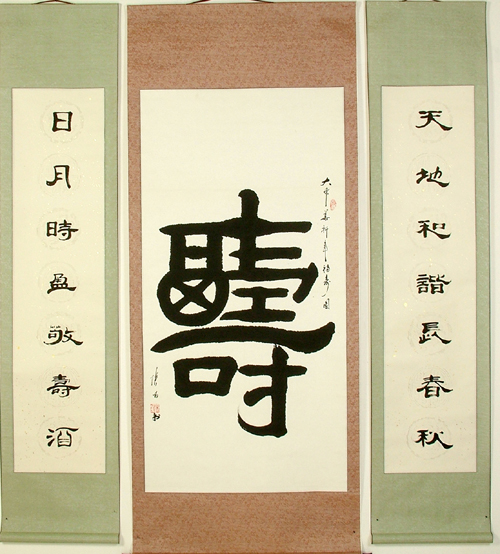 天地和諧長春秋
壽
日月時盈敬壽酒